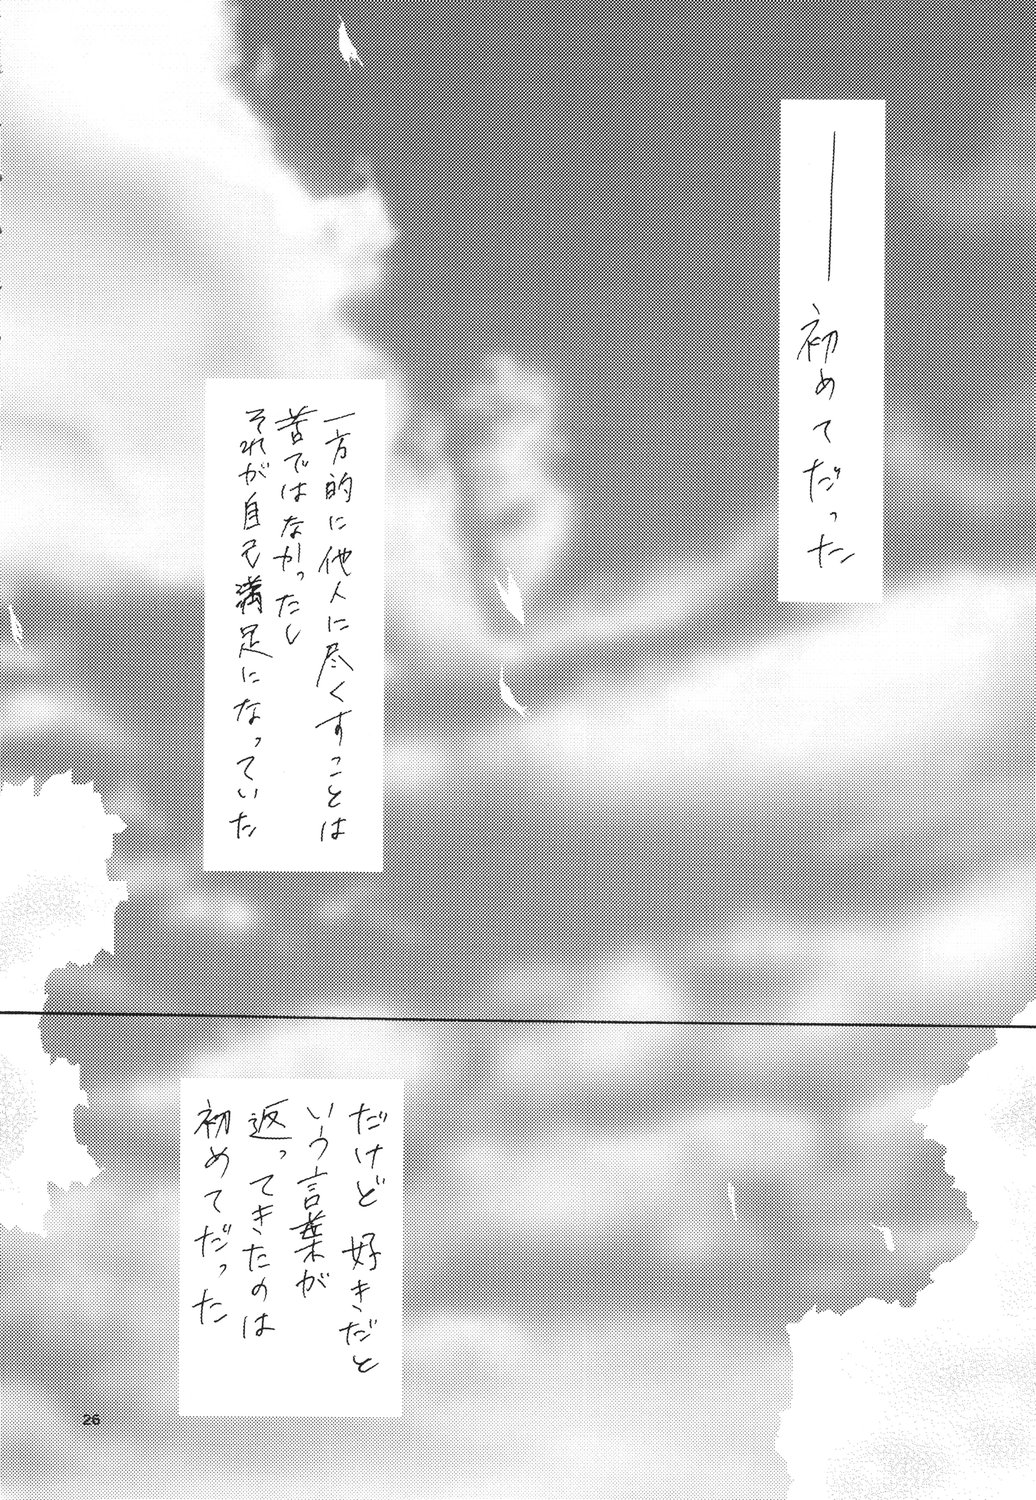 ――初めてだった
一方的に他人に尽くすことは
苦ではなかったし
それが自己満足になっていた
だけど好きだと
いう言葉が
返ってきたのは
初めてだった
26